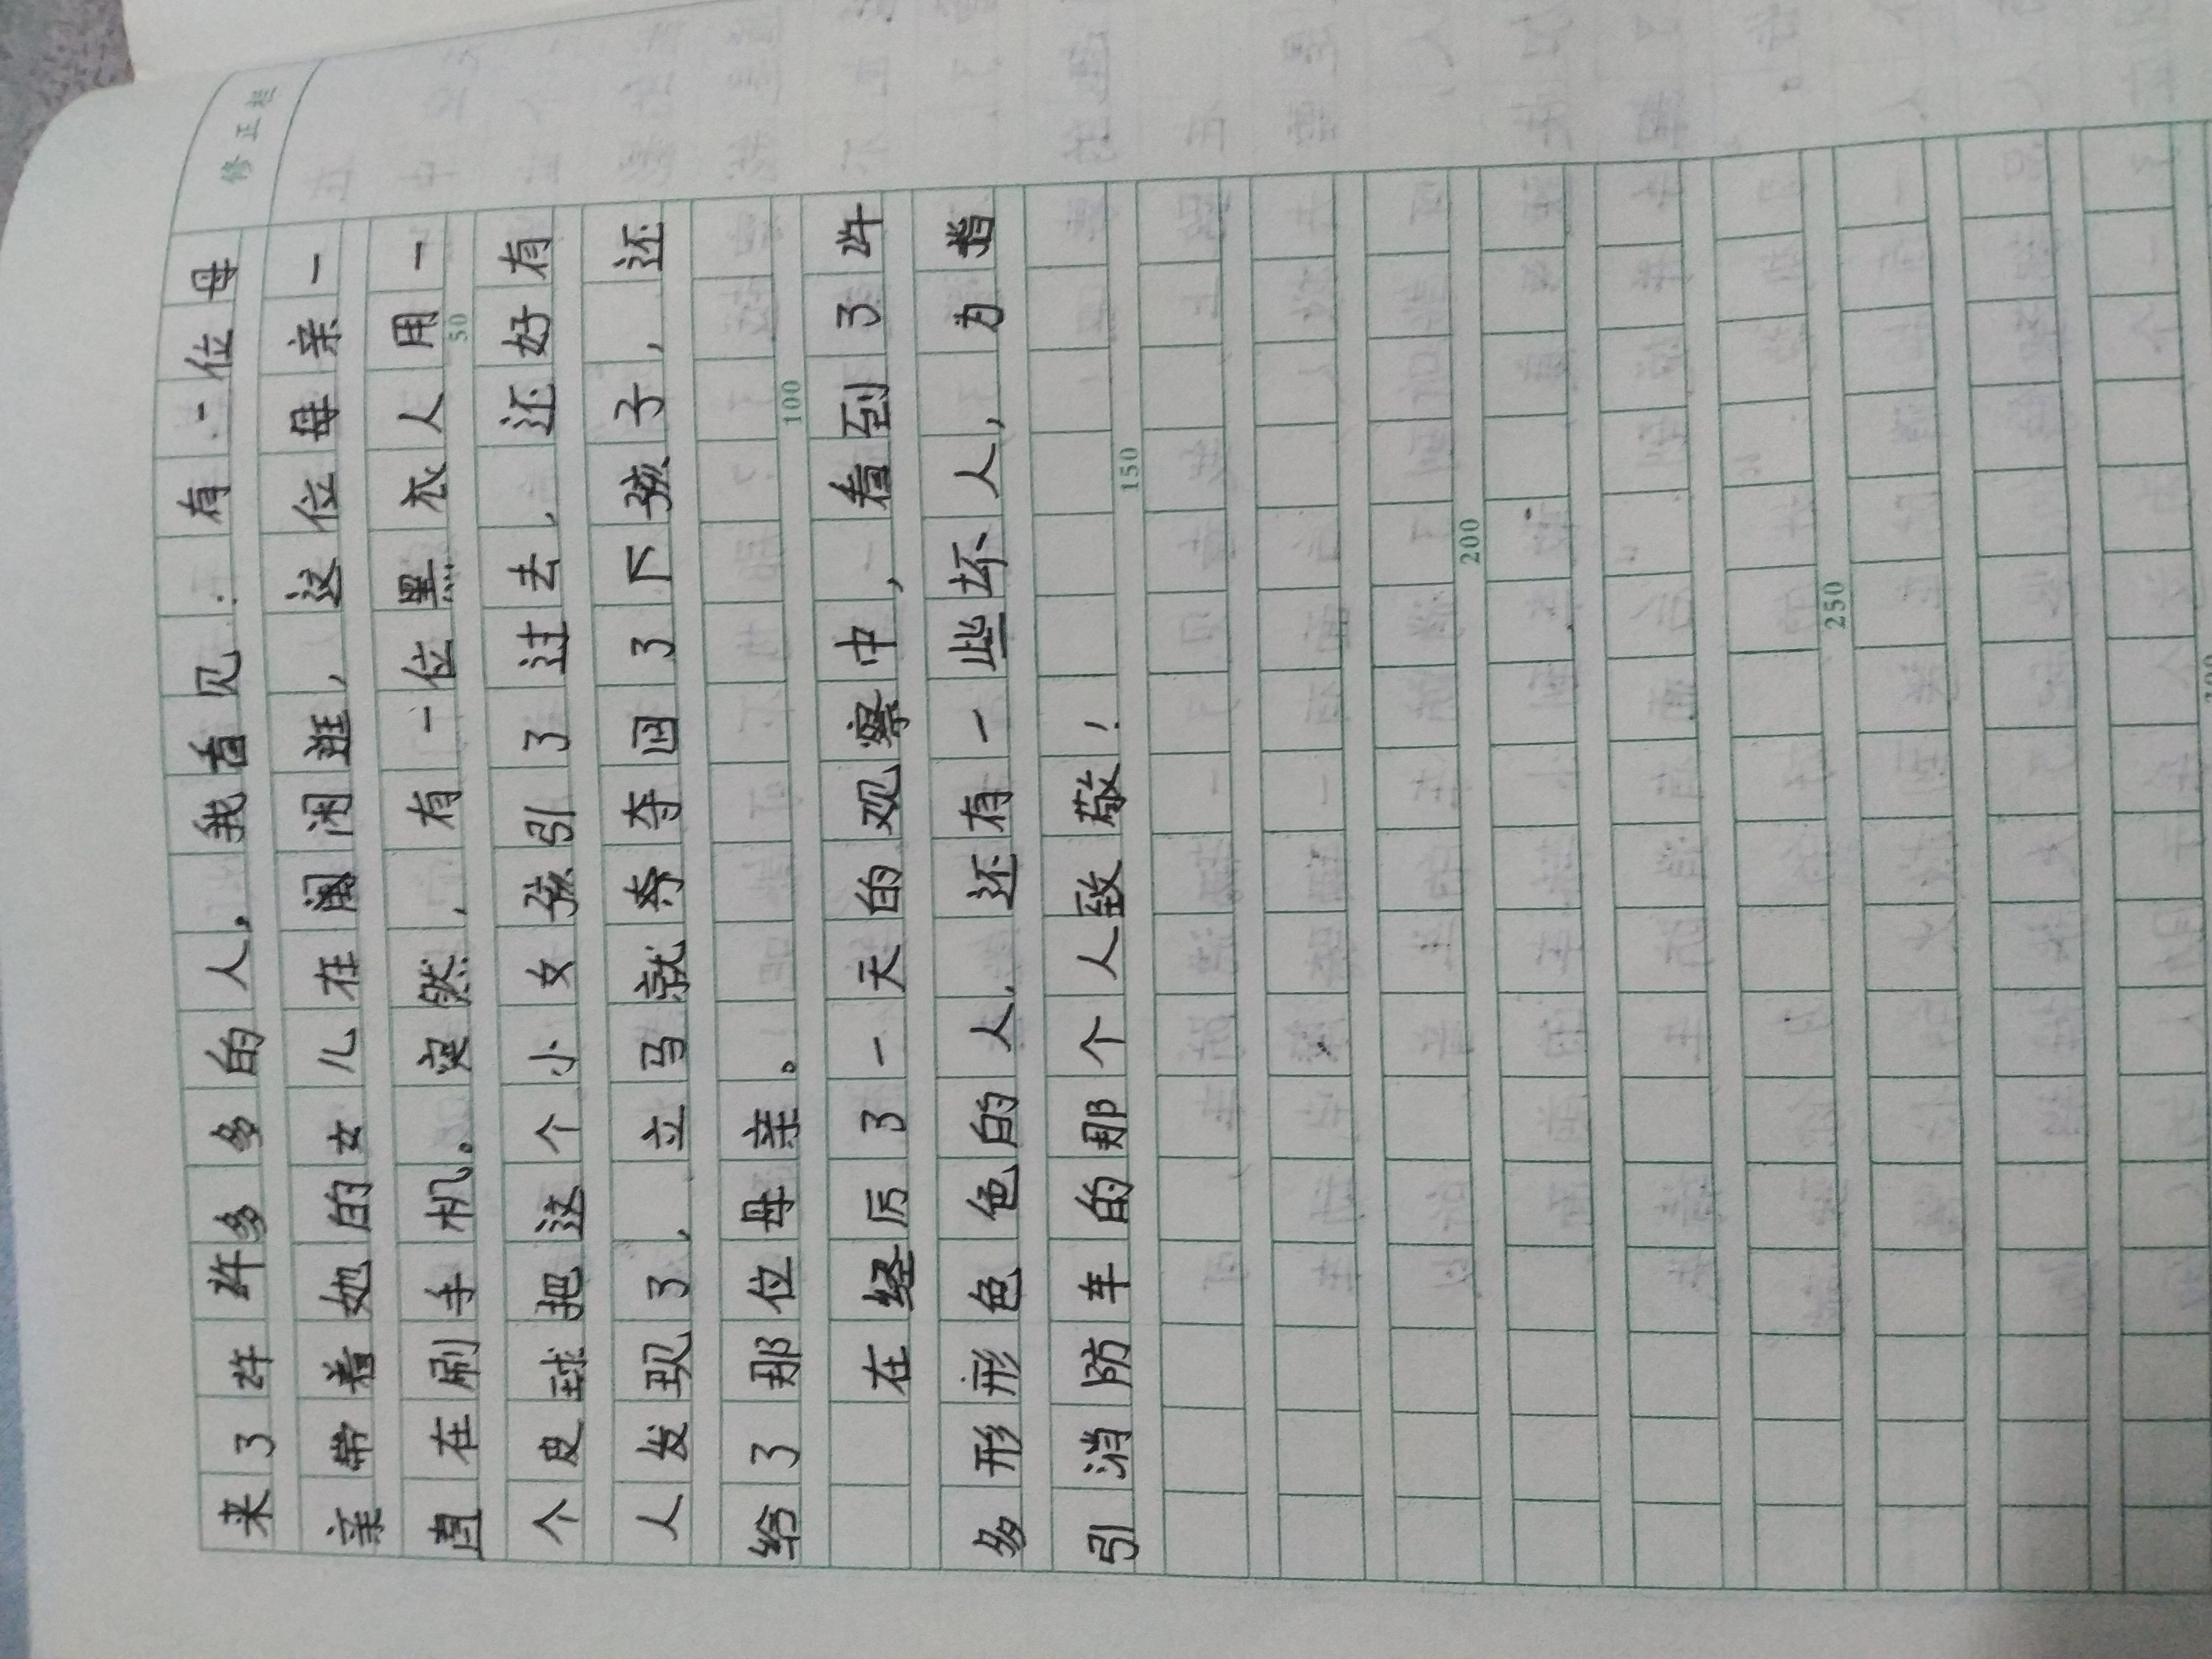 修正栏
来了许许多多的人，我看见有一位母
亲带着她的女儿在阛闲逛，这位母亲一
直在刷手机。突然，有一位黑衣人用一
个皮球把这个小女孩引了过去，还好有
人发现了，立马就夺夺回了下孩子，还
给了那位母亲。
100
在经厉了一天的观察中，看到了许
多形形色色的人，还有一些坏人，为指
引消防车的那个人致敬！
50
150
200
250